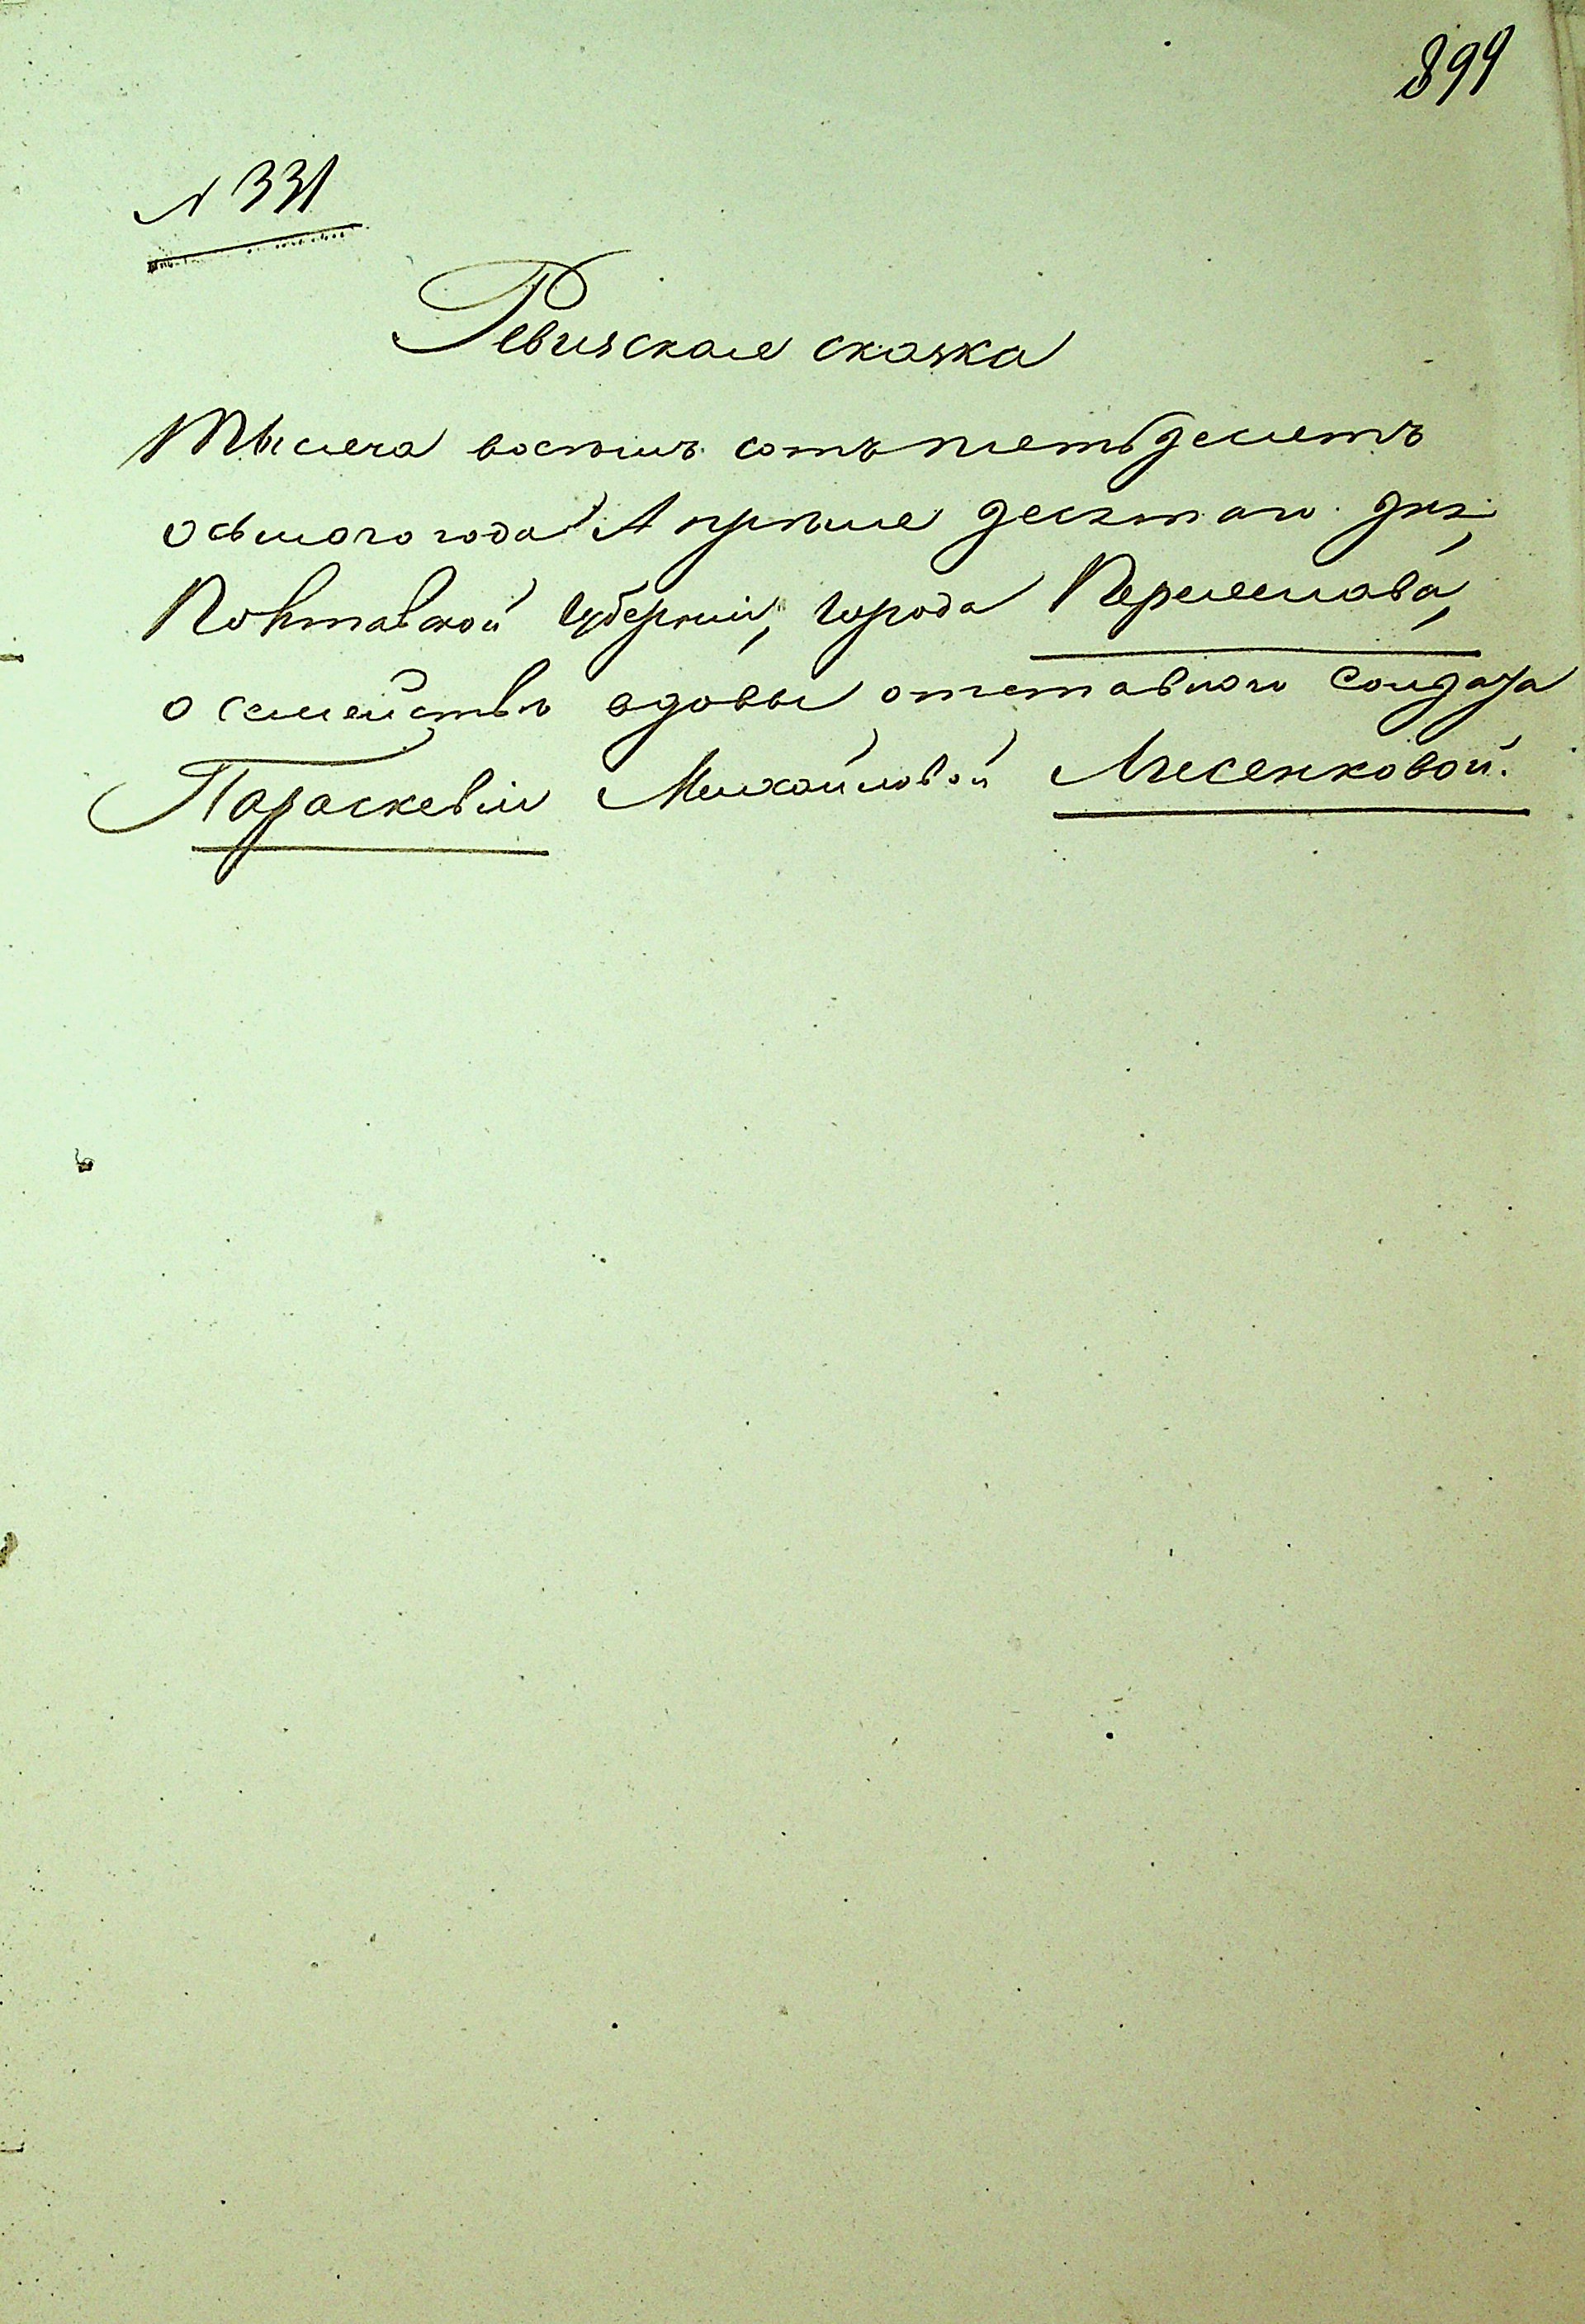 899
N 331
Ревизская сказка
Тысяча восемь сотъ пятьдесятъ
осьмого года Апреля десятаго дня,
Полтавской губерніи, города Переяслава,
о семействѣ вдовы отставного солдата
Параскевіи Михайловой Лысенковой.